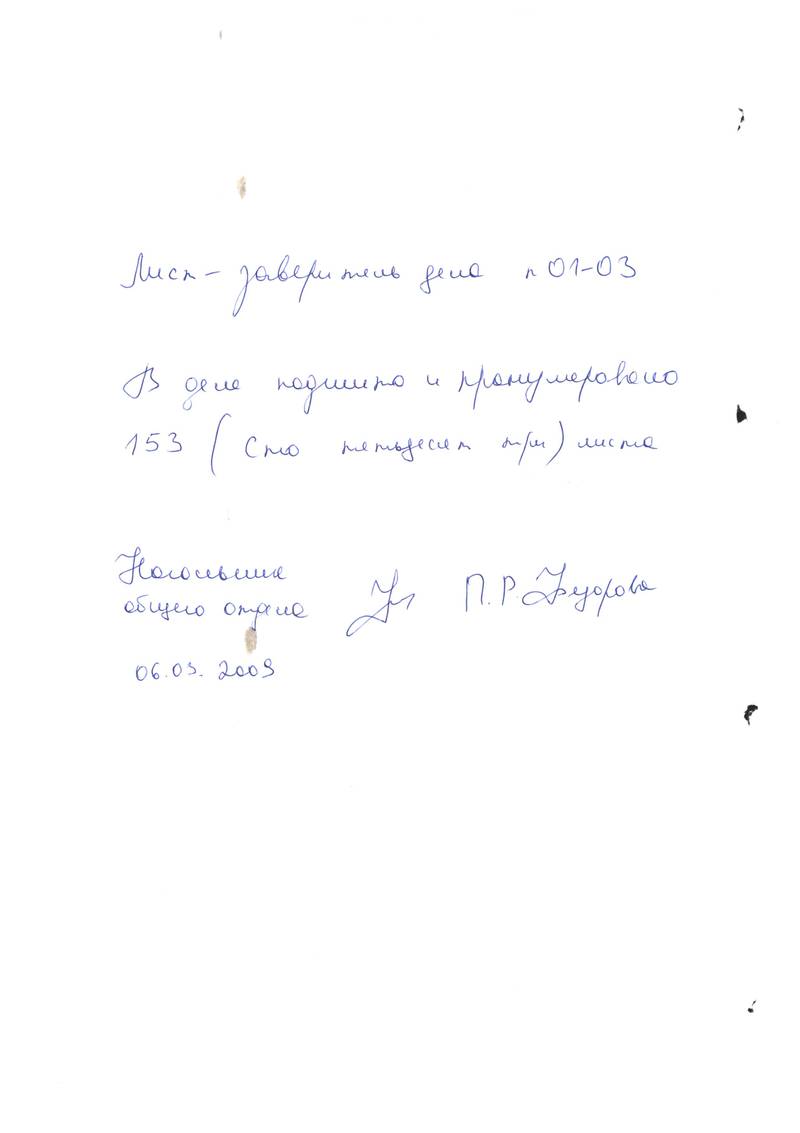 Лист-заверитель дела n 01-03
В деле подшито и пронумеровано
153 (Сто пятьдесят три) листа
Начальник
общего отдела П.Р. Федорова
06.03. 2009